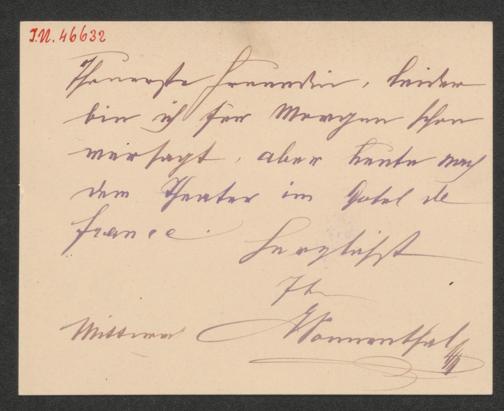 I.N. 46632
Theuerste Freundin, leider
bin ich für Morgen schon
versagt, aber heute nach
dem Theater im Hotel de
France.
Herzlichst
Ihr
Mittwoch Sonnenthal